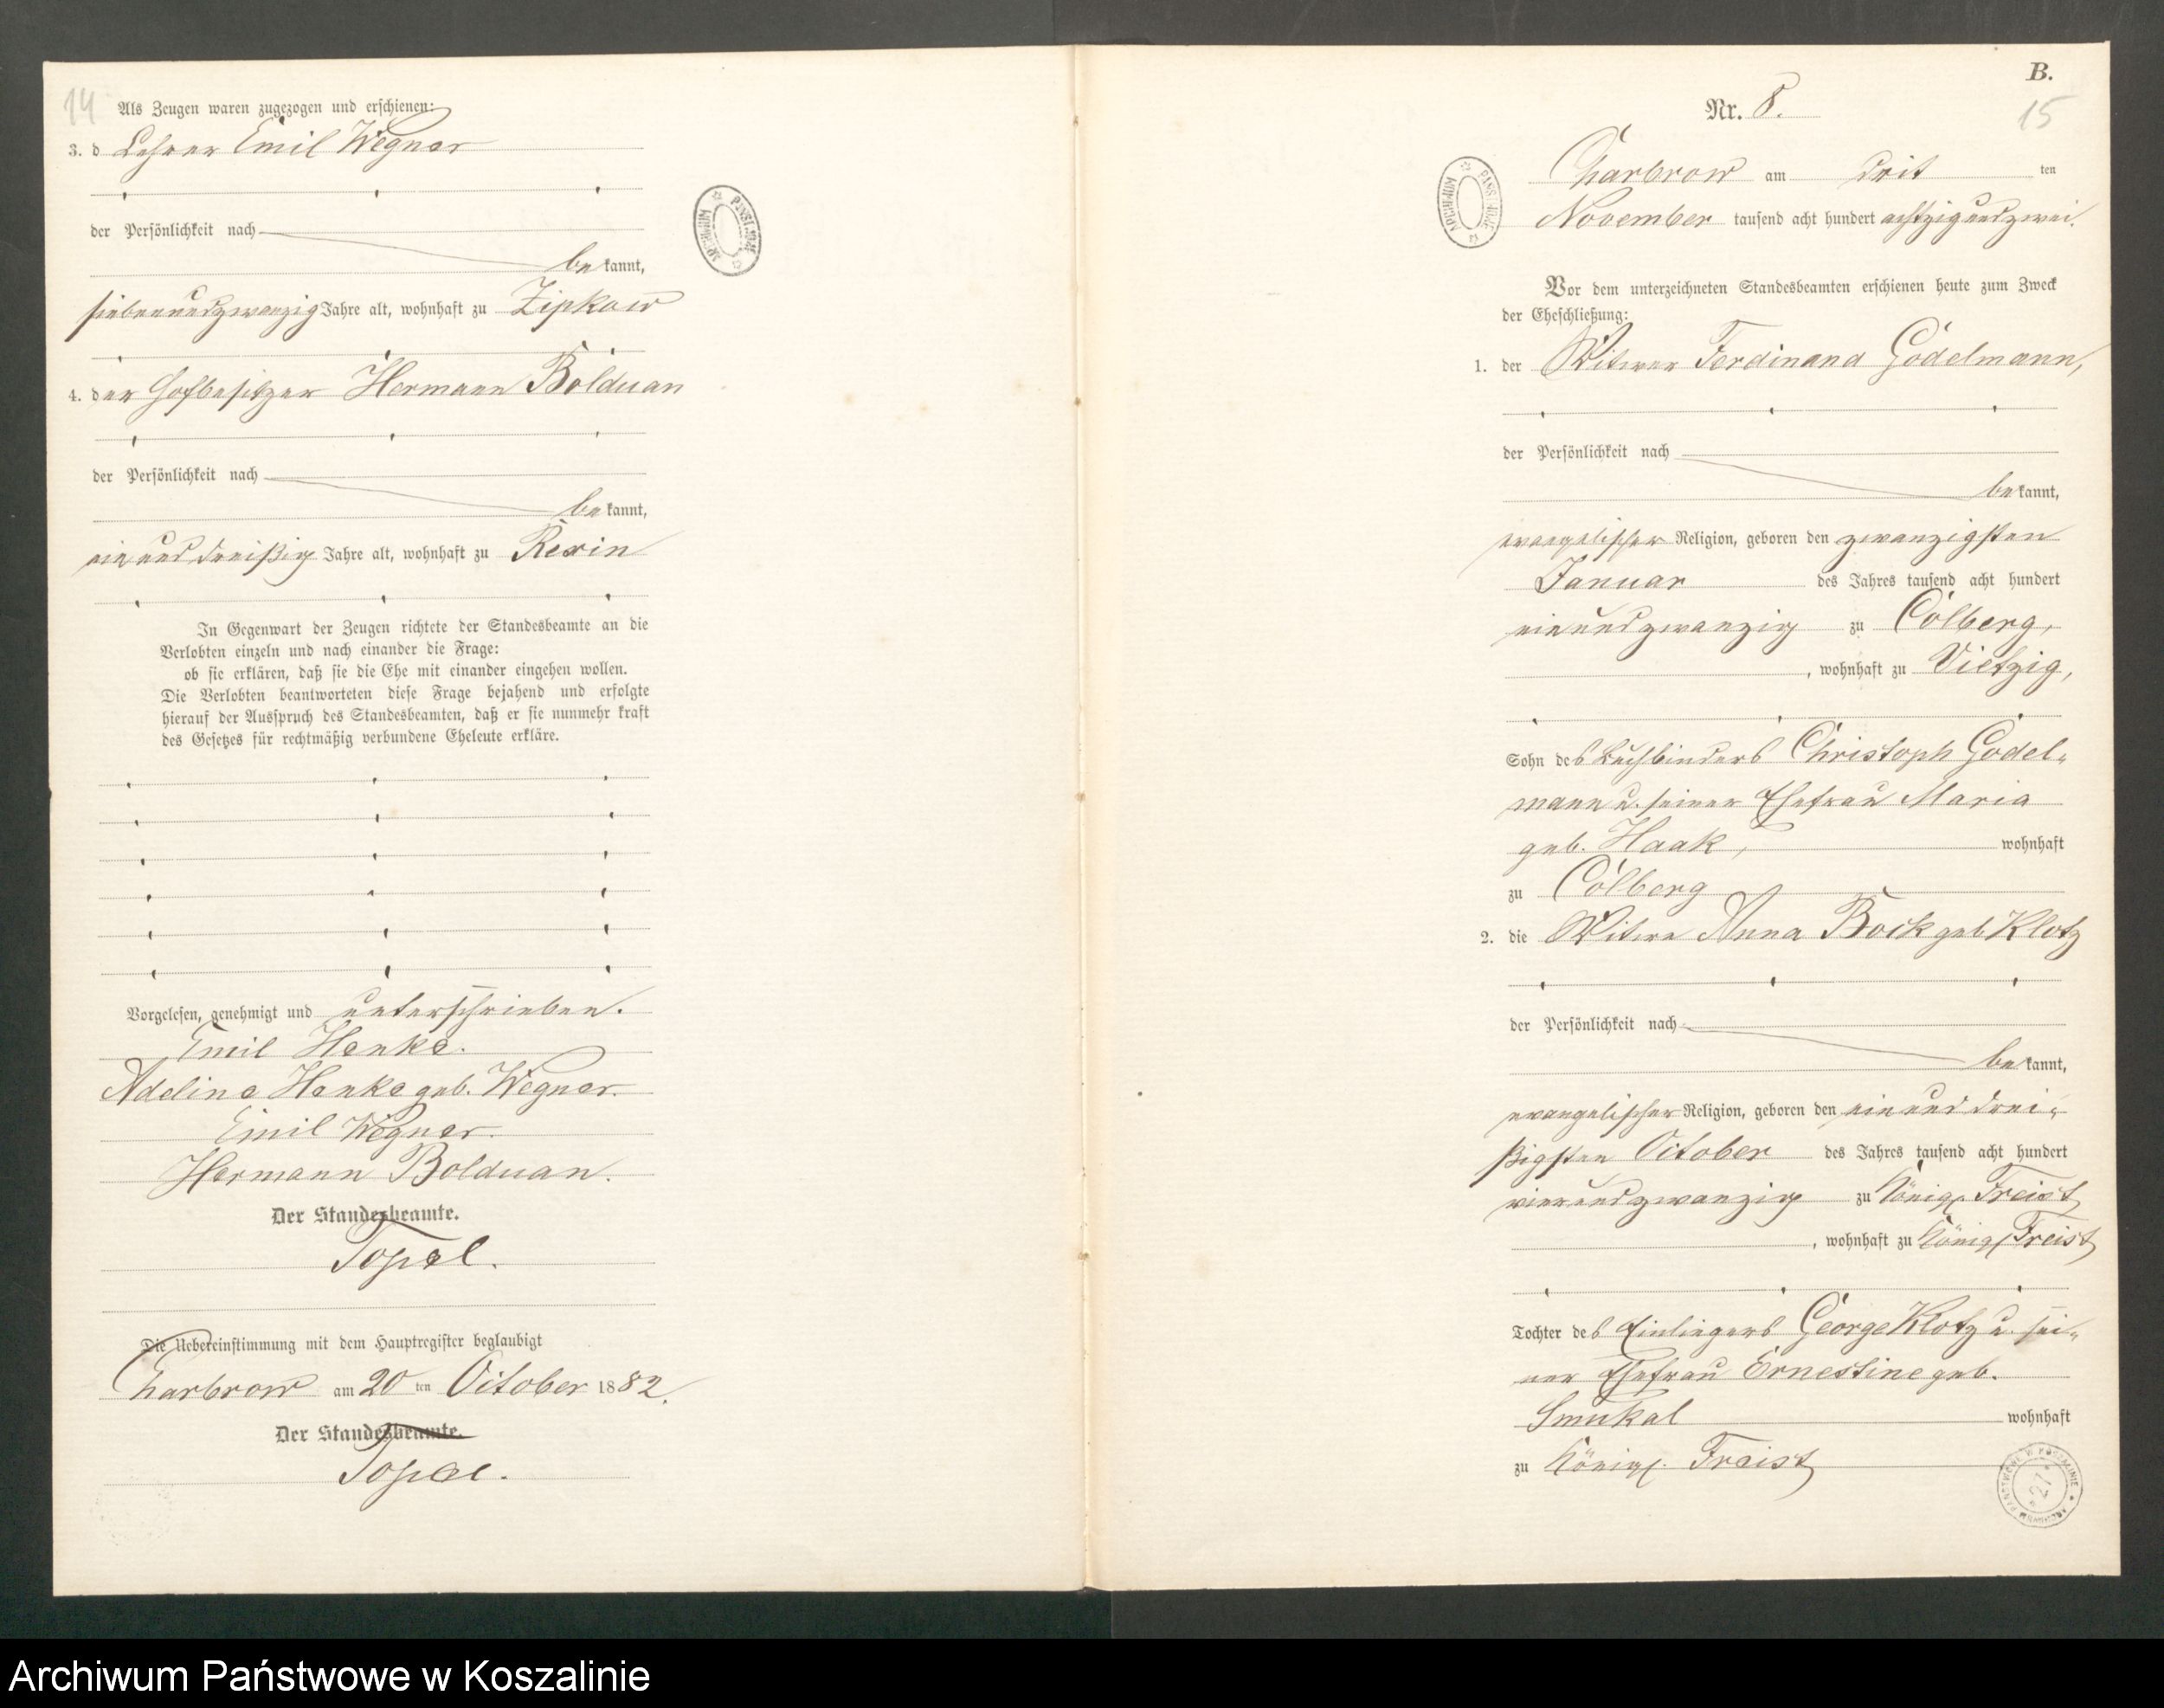 14
Als Zeugen waren zugezogen und erschienen:
3. d Lehrer Emil Wegner
der Persönlichkeit nach
be kannt,
siebenundzwanzig Jahre alt, wohnhaft zu Zipkow
4. der Hofbesitzer Hermann Bolduan
der Persönlichkeit nach
be kannt,
einunddreißig Jahre alt, wohnhaft zu Rexin
In Gegenwart der Zeugen richtete der Standesbeamte an die
Verlobten einzeln und nach einander die Frage:
ob sie erklären, daß sie die Ehe mit einander eingehen wollen.
Die Verlobten beantworteten diese Frage bejahend und erfolgte
hierauf der Ausspruch des Standesbeamten, daß er sie nunmehr kraft
des Gesetzes für rechtmäßig verbundene Eheleute erkläre.
Vorgelesen, genehmigt und unterschrieben.
Emil Henke.
Adeline Henke geb. Wegner.
Emil Wegner.
Hermann Bolduan.
Der Standesbeamte.
Topel.
Die Uebereinstimmung mit dem Hauptregister beglaubigt
Charbrow am 20 ten October 1882.
Der Standesbeamte.
Topel.
B.
15
Nr. 8.
Charbrow am drit ten
November tausend acht hundert achtzigundzwei.
Vor dem unterzeichneten Standesbeamten erschienen heute zum Zweck
der Eheschließung:
1. der Witwer Ferdinand Godelmann,
der Persönlichkeit nach
be kannt,
evangelischer Religion, geboren den zwanzigsten
Januar des Jahres tausend acht hundert
einundzwanzig zu Colberg,
, wohnhaft zu Vietzig,
Sohn des Buchbinders Christoph Godel-
mann u. seiner Ehefrau Maria
geb. Haak, wohnhaft
zu Colberg
2. die Witwe Anna Bock geb Klotz
der Persönlichkeit nach
be kannt,
evangelischer Religion, geboren den einunddrei-
ßigsten October des Jahres tausend acht hundert
vierundzwanzig zu Königl. Freist
, wohnhaft zu Königl Freist
Tochter des Einliegers George Klotz u. sei-
ner Ehefrau Ernestine geb.
Smukal wohnhaft
zu Königl. Freist
ARCHIWUM PAŃSTWOWE W KOSZALINIE
27
Archiwum Państwowe w Koszalinie